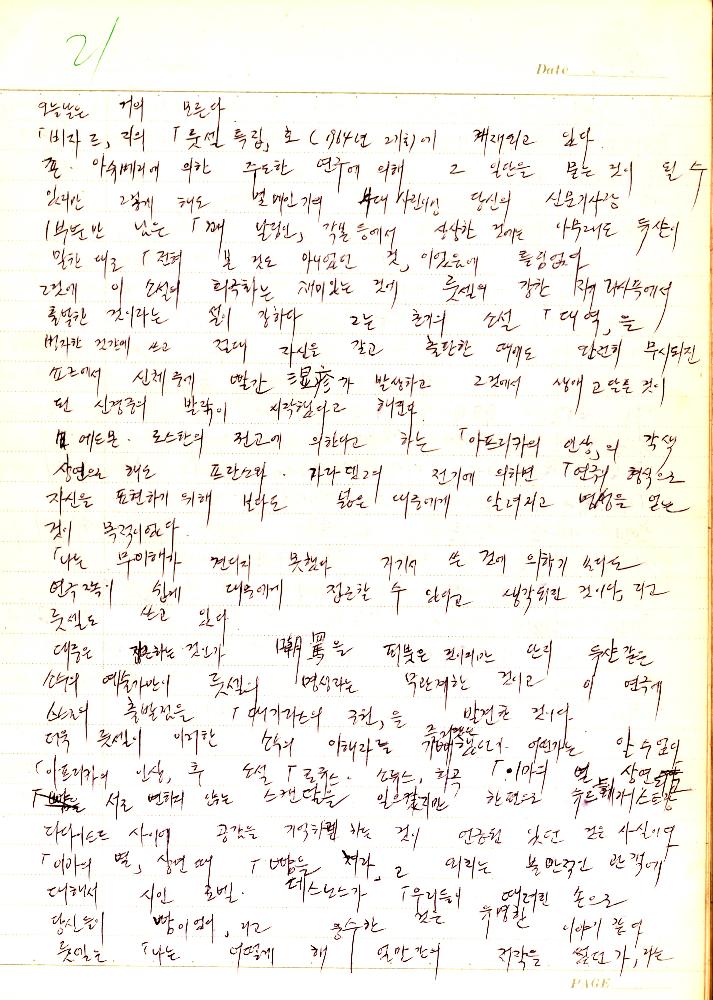 21
Date
오늘날은 거의 모른다
「비자르, 리의 「룻셀 특집, 호 (1964년 2개)에 게재되고 있다.
쟌·아쉬베리에 의한 주도한 연구에 의해 그 일단을 묻는 것이 될 수
있지만 그렇게 해도 당신의 신문기사랑
1부분만 남은 각본등에서 상상한 것에는 아무래도 듀샹이
말한 대로 「전혀 본 것도 아니었던 것, 이었음에 틀림없다
그것에 이 소설의 희극화는 재미있는 것에 룻셀의 강한 자기 과시욕에서
출발한 것이라는 설이 강하다 그는 초기의 소설 「대역,을
쓰고 절대 자신을 갖고 출판한 때에도 완전히 무시되진
쇼크에서 신체중에 빨간 濕疹가 발생하고 그것에서 생애 고단은 것이
된 신경증의 발작이 시작했다고 해선다
에드몬·로스탄의 권고에 의한다고 하는 「아프리카의 인상,의 각색
상연으로 해도 프랑스와·카라델그의 전기에 의하면 「연극의 형식으로
자신을 표현하기 위해 보다도 넓은 대중에게 알려지고 명성을 얻는
것이 목적이었다
「나는 무이해가 견디지 못했다 거기서 쓴 것에 의하기 보다도
연극쪽이 쉽게 대중에게 접근할 수 있다고 생각되진 것이다, 라고
룻셀도 쓰고 있다
대중은 접근하는 것인가 嘲罵을 퍼붓은 것이지만 단지 듀샹같은
소수의 예술가만이 룻셀의 명성과는 무관계한 것이고 이 연극에
스스로의 출발점을 「대기가스의 구현,을 발견한 것이다
더욱 룻셀이 이러한 소수의 이해자를 기뻐했는지 어떤가는 알 수 없어
「아프리카의 인상, 후 소설 「로쿠스·소루스, 희곡 「이마의 별, 상연
「서로 변하지 않는 스캔달을 일으켰지만 한편으로
다다이스트 사이에 공감을 기억하게 하는 것이 연출된 있던 것은 사실이며
「이마의 별, 상연 때 「빰을 쳐라, 그 의뢰는 불만적인 관객에
대해서 시인 로벨·데스노스가 「우리들이 때려진 손으로
당신들이 빰이었어, 라고 응수한 것은 유명한 이야기 같아
룻셀은 「나는 어떻게 해 얼만간의 저작을 썼던가,라는
PAGE